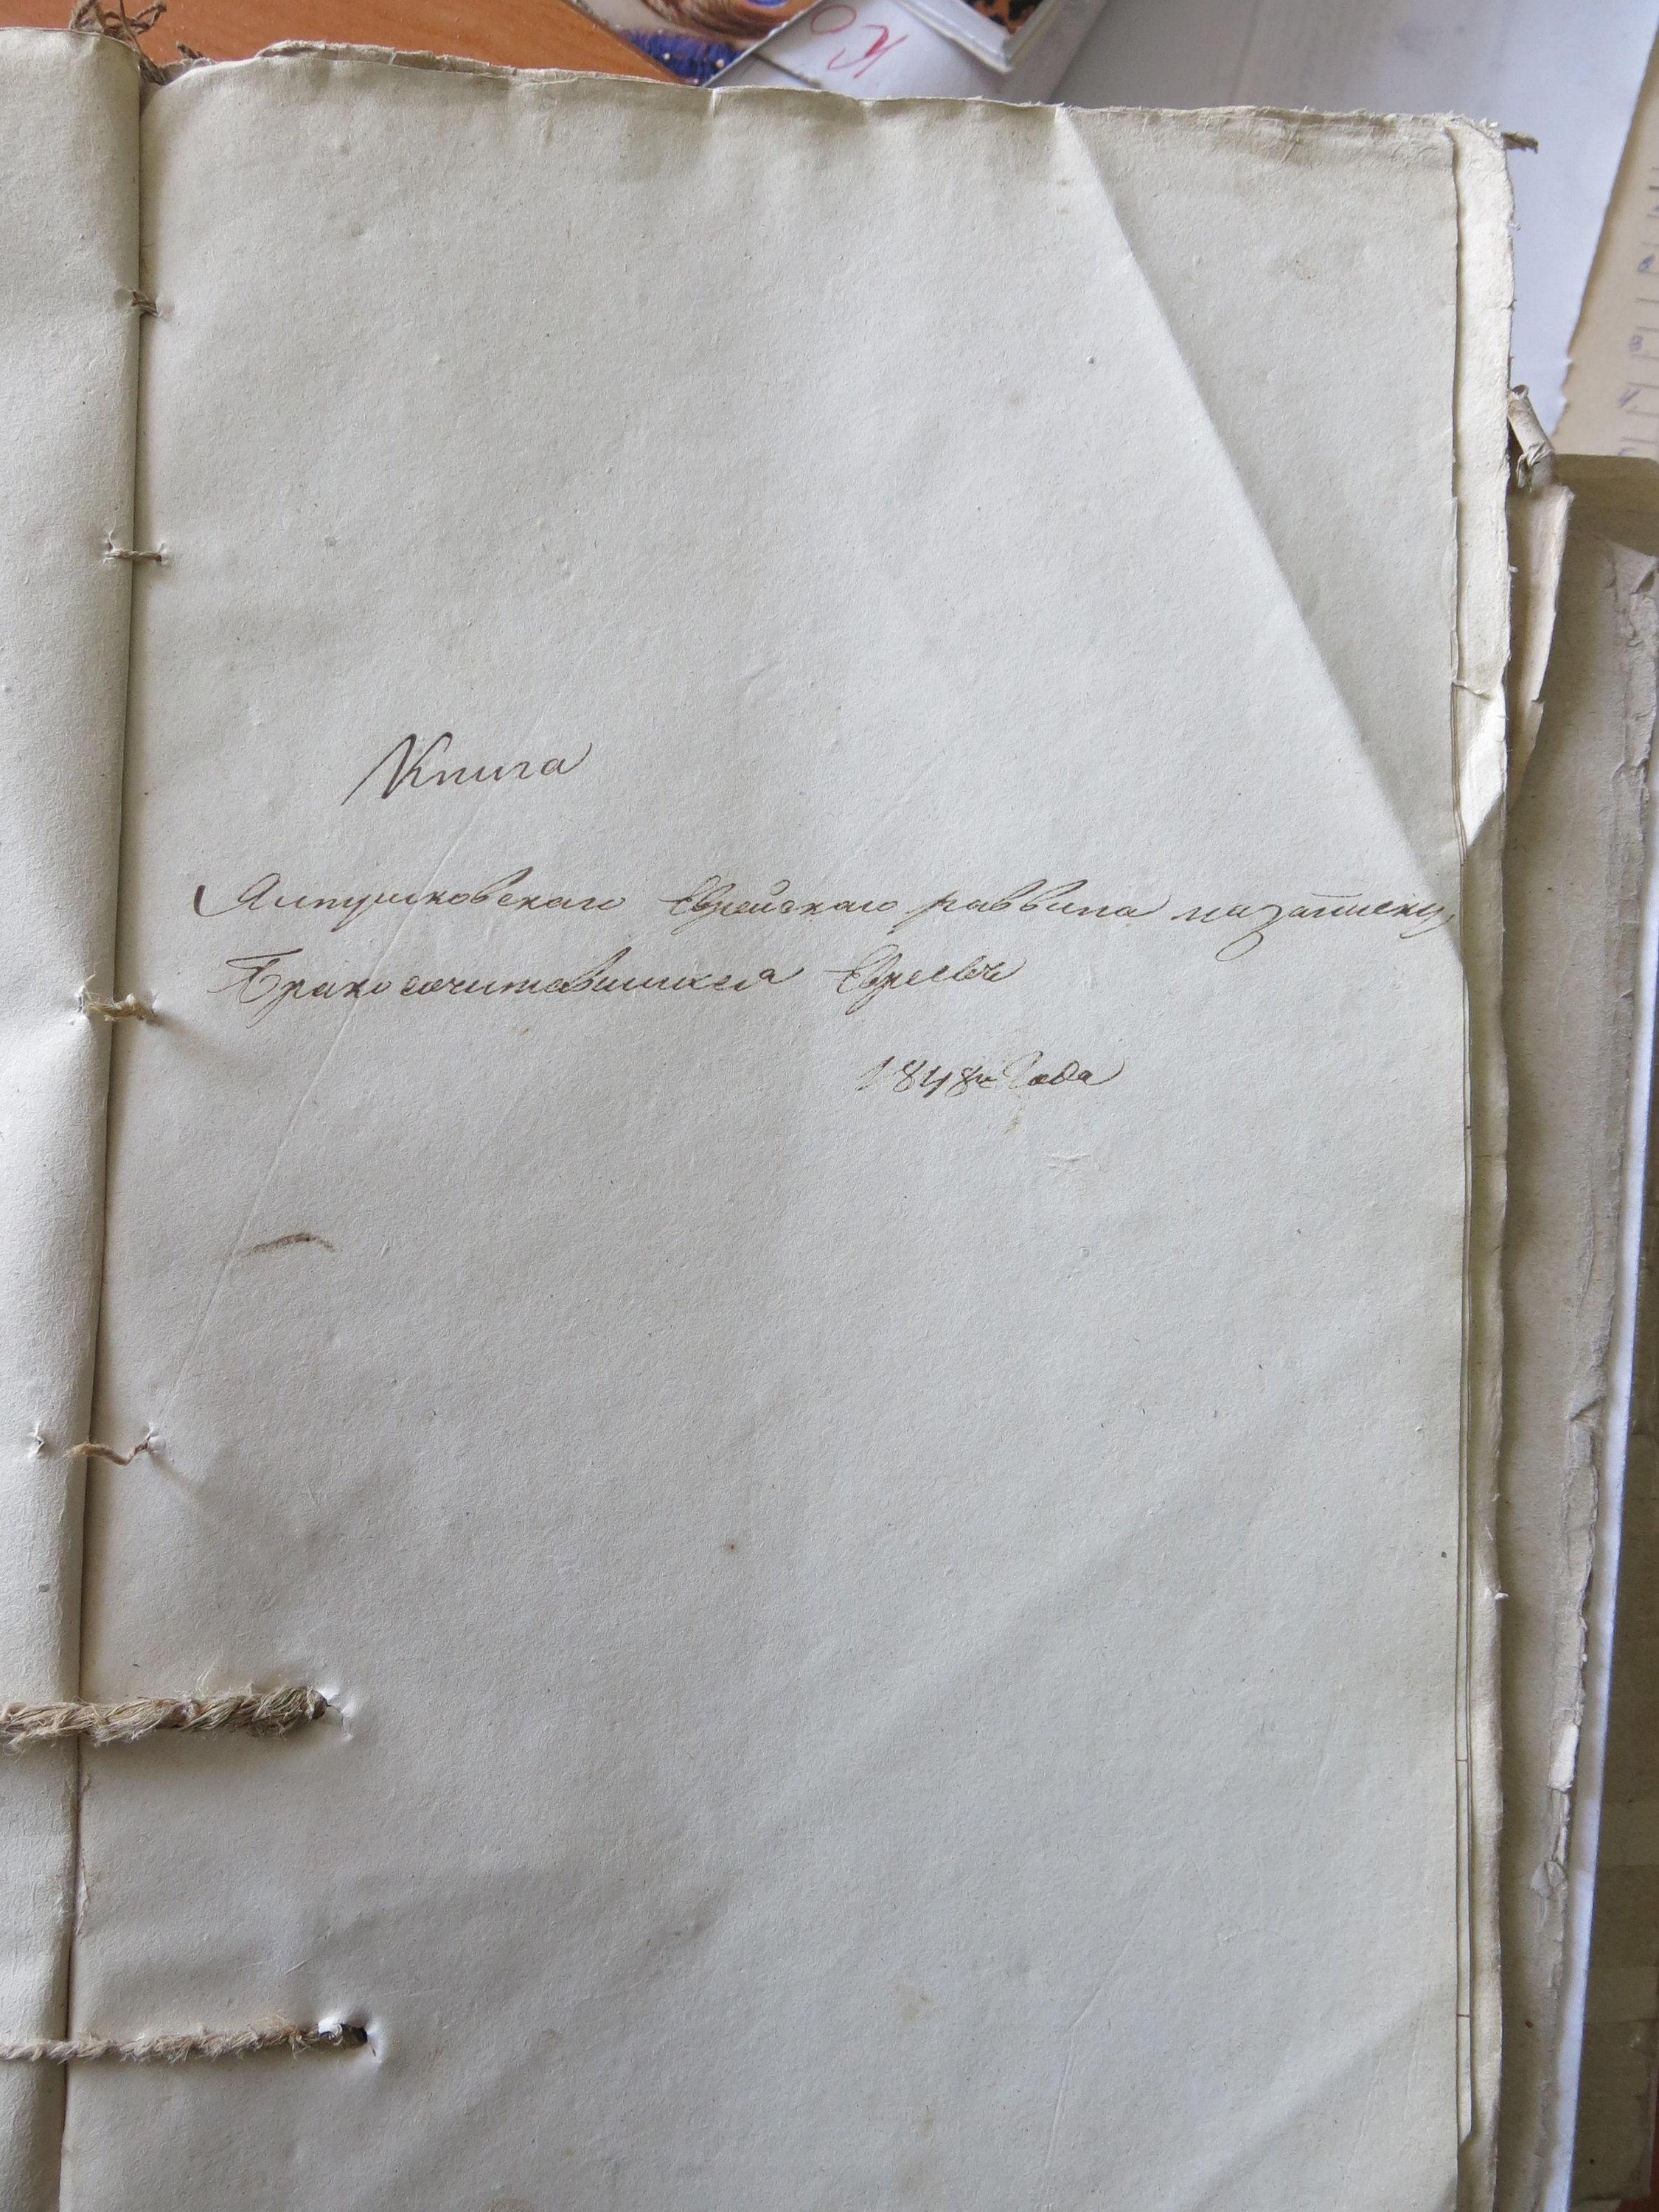 Книга
Ялтушковскаго Еврейскаго раввина на записку
Бракосочитавшихся Евреевъ
1848го Года